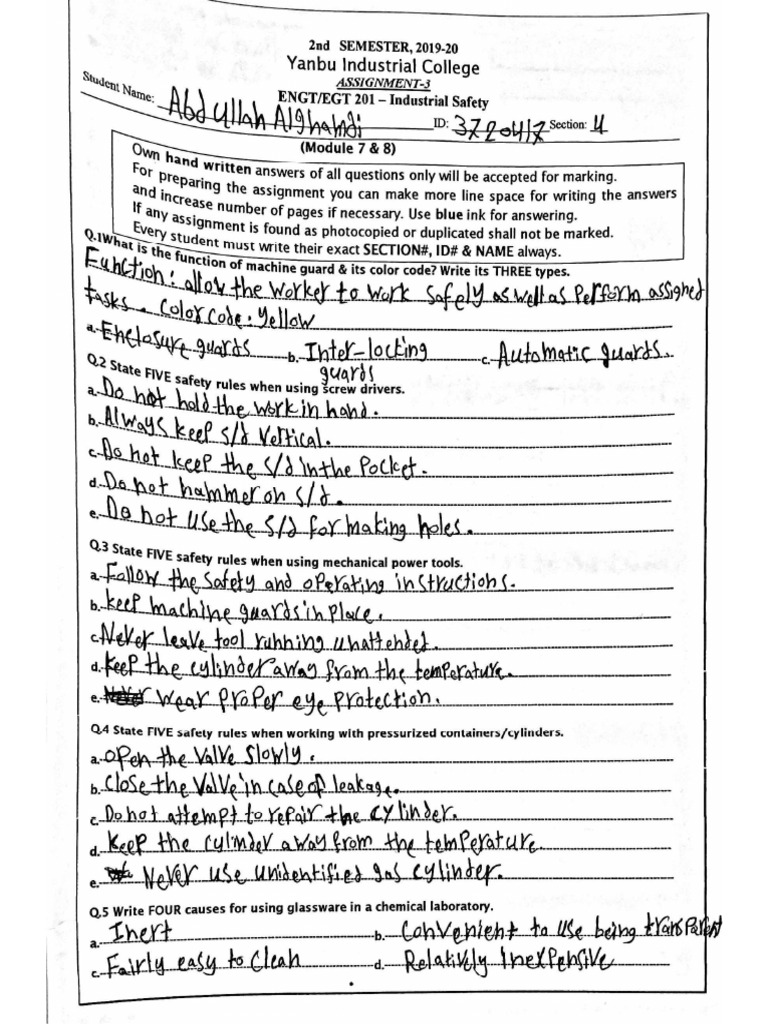 2nd SEMESTER, 2019-20
Yanbu Industrial College
ASSIGNMENT-3
ENGT/EGT 201 – Industrial Safety
Student Name: Abdullah Alghamdi ID: 3720417 Section: 4
(Module 7 & 8)
Own hand written answers of all questions only will be accepted for marking.
For preparing the assignment you can make more line space for writing the answers
and increase number of pages if necessary. Use blue ink for answering.
If any assignment is found as photocopied or duplicated shall not be marked.
Every student must write their exact SECTION#, ID# & NAME always.
Q.1What is the function of machine guard & its color code? Write its THREE types.
Function: allow the worker to work safely as well as perform assigned
tasks. Color code: yellow
a. Enclosure guards b. Inter-locking guards c. Automatic guards.
Q.2 State FIVE safety rules when using screw drivers.
a. Do not hold the work in hand.
b. Always keep s/d vertical.
c. Do not keep the s/d in the pocket.
d. Do not hammer on s/d.
e. Do not use the s/d for making holes.
Q.3 State FIVE safety rules when using mechanical power tools.
a. Follow the safety and operating instructions.
b. keep machine guards in place.
c. Never leave tool running unattended.
d. keep the cylinder away from the temperature.
e. wear proper eye protection.
Q.4 State FIVE safety rules when working with pressurized containers/cylinders.
a. open the valve slowly.
b. Close the valve in case of leakage.
c. Do not attempt to repair the cylinder.
d. keep the cylinder away from the temperature.
e. Never use unidentified gas cylinder.
Q.5 Write FOUR causes for using glassware in a chemical laboratory.
a. Inert b. Convenient to use being transparent
c. Fairly easy to clean d. Relatively inexpensive